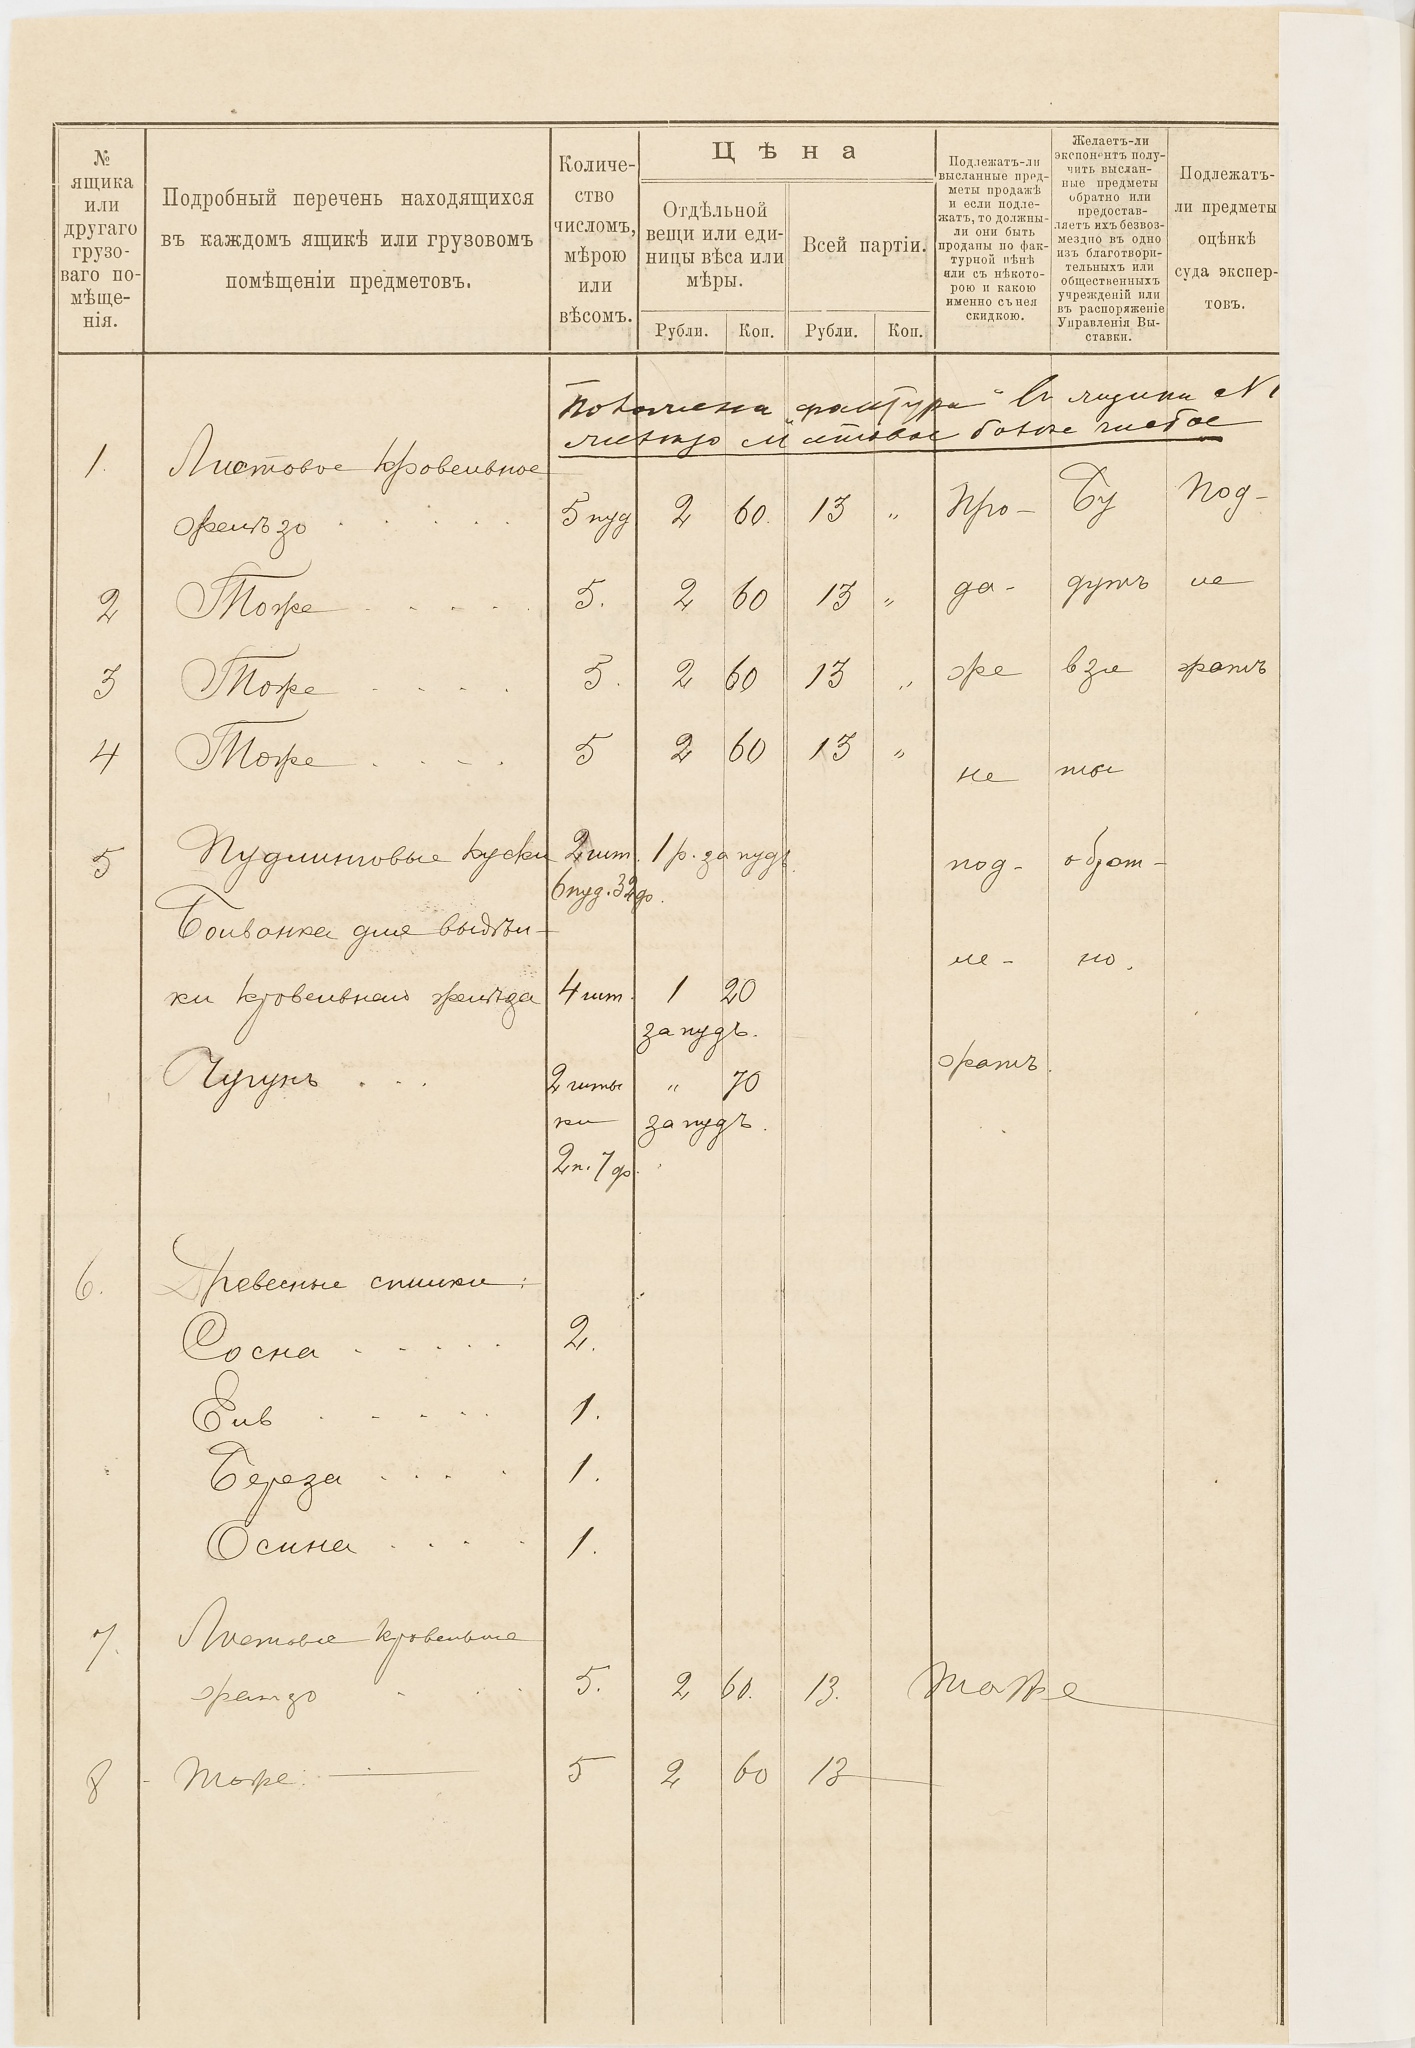 № ящика или другаго грузо-ваго по-мѣще-нія.
Подробный перечень находящихся
въ каждомъ ящикѣ или грузовомъ
помѣщеніи предметовъ.
Количе-
ство
числомъ,
мѣрою
или
вѣсомъ.
Цѣна
Отдѣльной
вещи или еди-
ницы вѣса или
мѣры.
Всей партіи.
Рубли. Коп. Рубли. Коп.
Подлежатъ-ли
высланные пред-
меты продажѣ
и если подле-
жатъ, то должны-
ли они быть
проданы по фак-
турной цѣнѣ
или съ нѣкото-
рою и какою
именно съ нея
скидкою.
Желаетъ-ли
экспонентъ полу-
чить выслан-
ные предметы
обратно или
предостав-
ляетъ ихъ безвоз-
мездно въ одно
изъ благотвори-
тельныхъ или
общественныхъ
учрежденій или
въ распоряженіе
Управленія Вы-
ставки.
Подлежатъ-
ли предметы
оцѣнкѣ
суда экспер-
товъ.
фактура въ ящики № 1
1. Листовое кровельное
желѣзо 5 пуд 2 60. 13 „ Про- Бу Под-
2 Тоже 5. 2 60 13 „ да- дутъ ле
3 Тоже 5. 2 60 13 „ же взя жатъ
4 Тоже 5 2 60 13 „
не ты
5 Пудлинговые куски 2 шт. 1 р. за пудъ. под- обрат-
6 пуд. 32 ф.
Болванка для выдѣл-
ле- но.
ки кровельнаго желѣза 4 шт. 1 20
за пудъ.
жатъ.
Чугунъ 2 шты „ 70
ки за пудъ.
2 п. 7 ф.
6. Древесные спилки:
Сосна 2.
Ель 1.
Береза 1.
Осина 1.
7. Листовое кровельное
желѣзо 5. 2 60. 13. тоже
8 - тоже 5 2 60 13